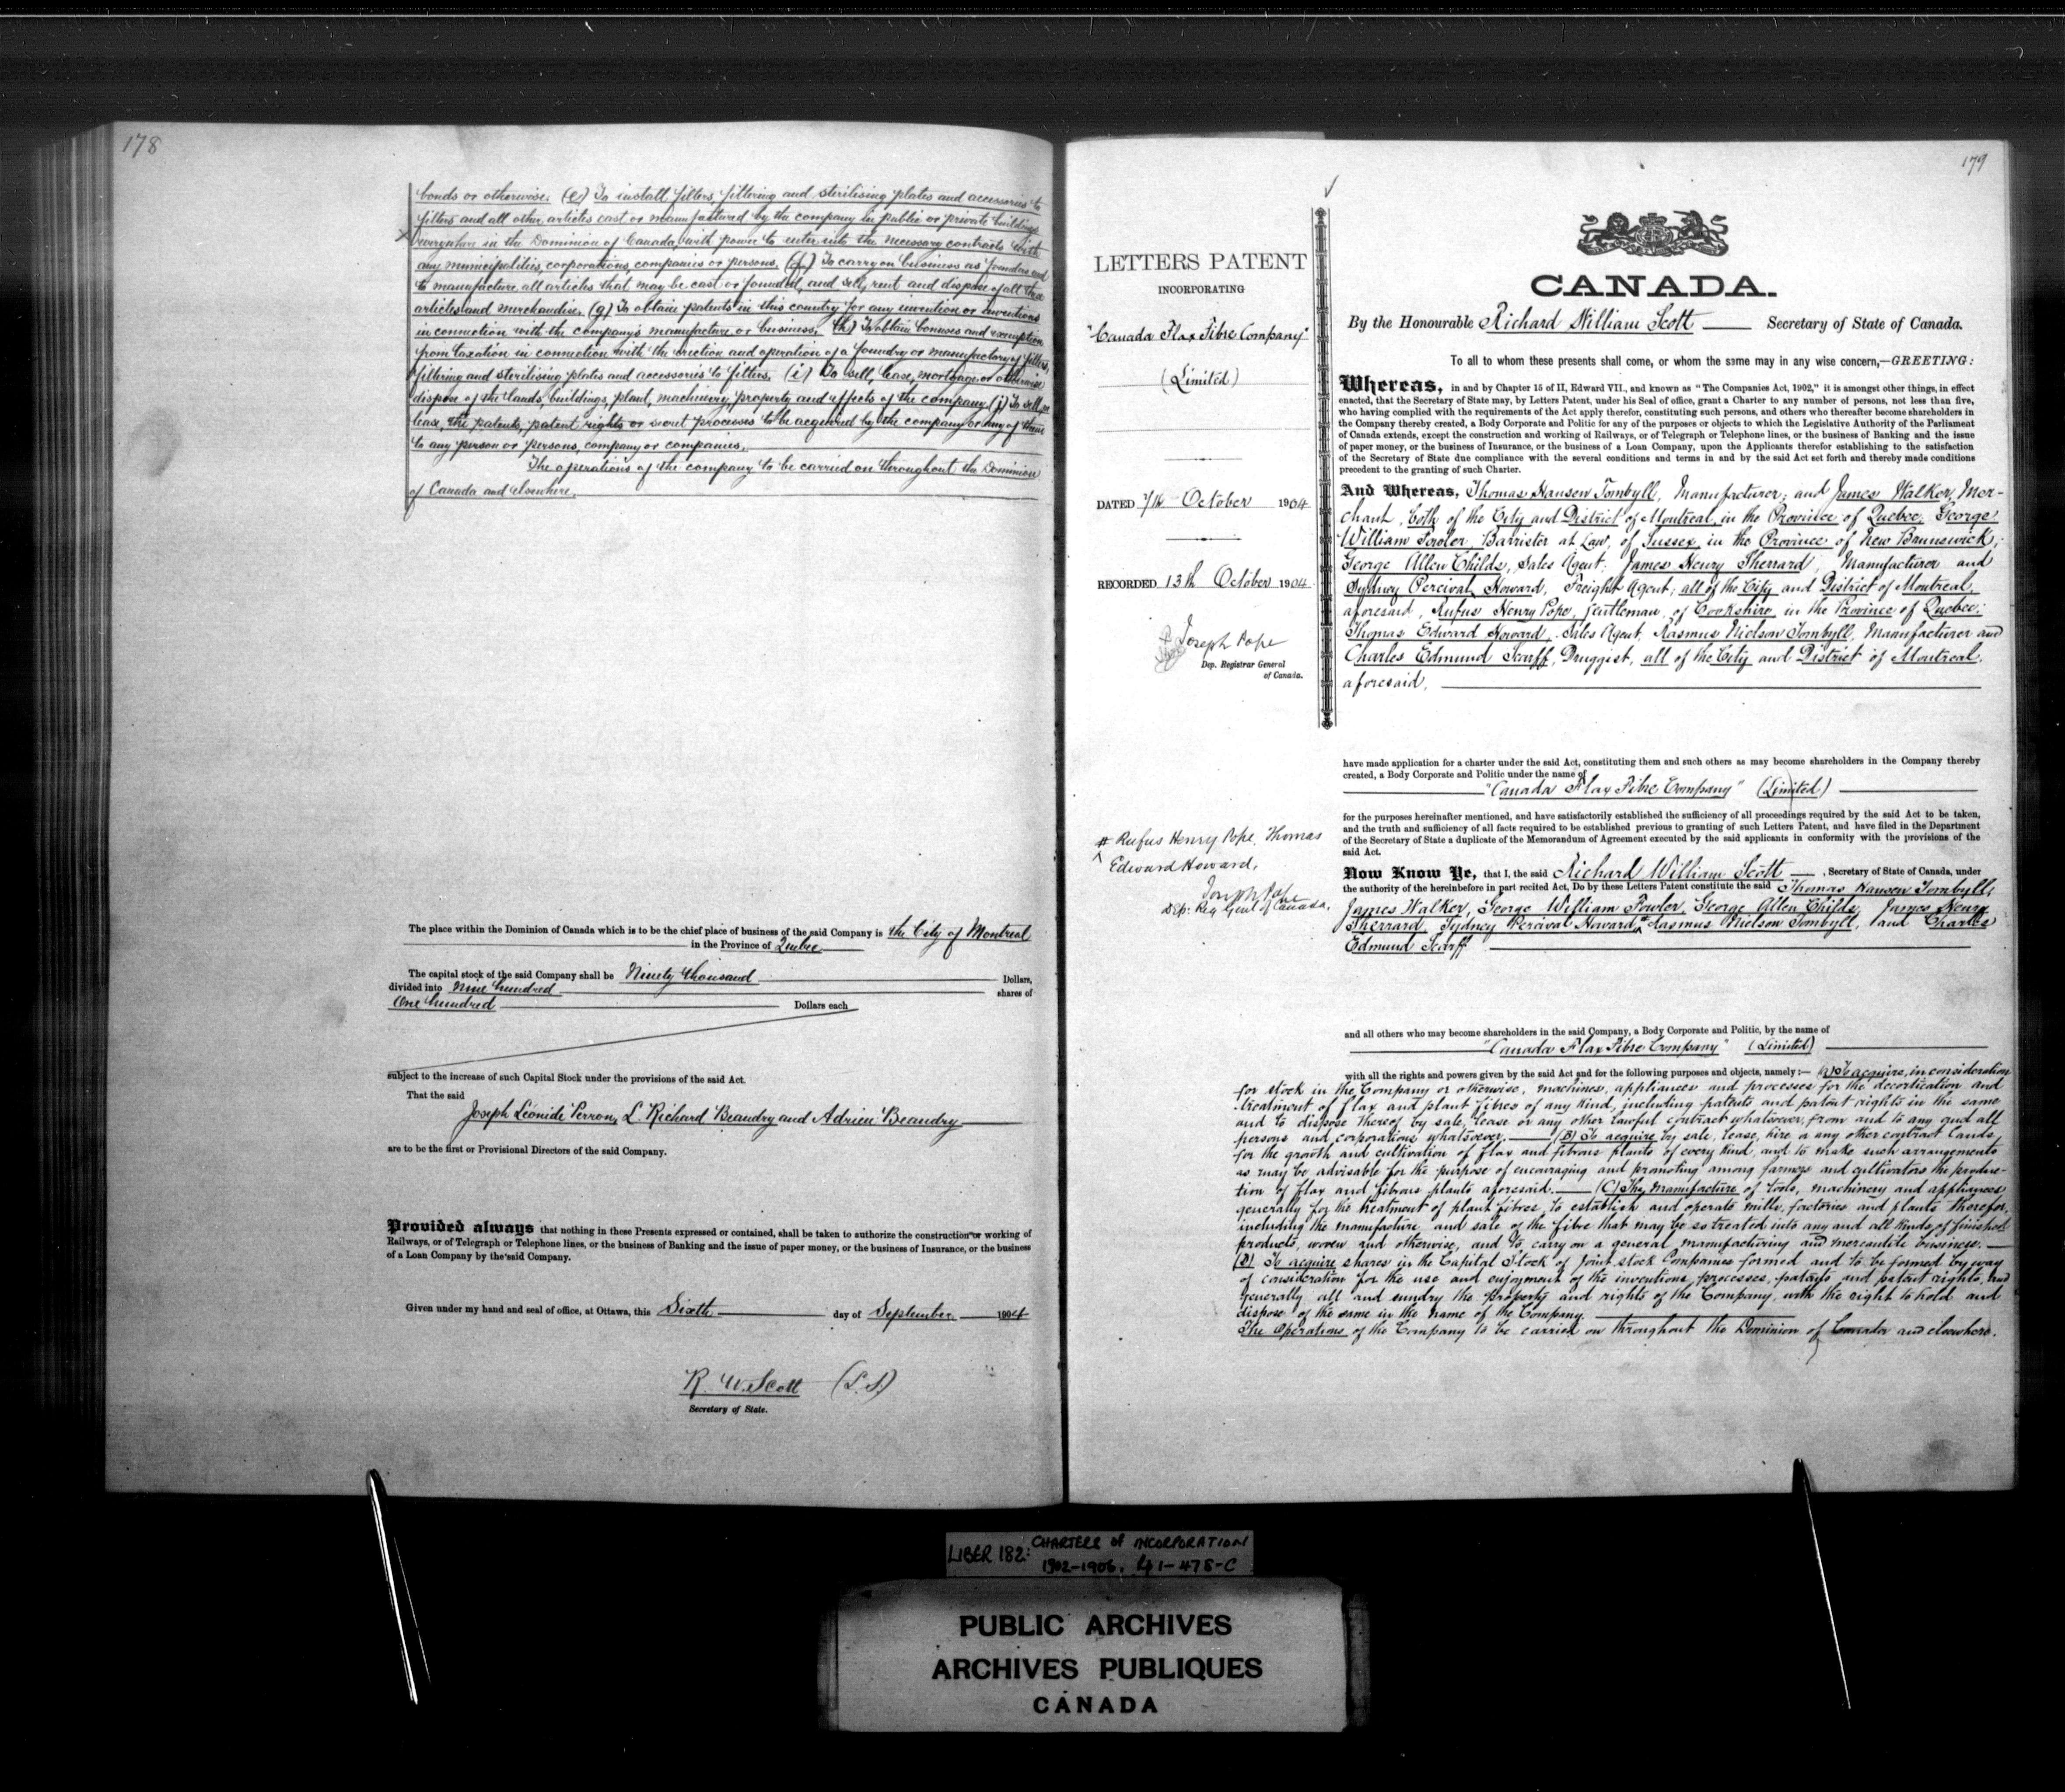 178
bonds or otherwise. (e) To install filters, filtering and sterilising plates and accessories to
filters and all other articles cast or manufactured by the company in public or private buildings
everywhere in the Dominion of Canada, with power to enter into the necessary contracts with
any municipalities, corporations, companies or persons. (f) To carry on business as founders and
to manufacture all articles that may be cast or founded, and sell, rent and dispose of all the
articles and merchandise. (g) To obtain patents in this country for any invention or inventions
in connection with the company's manufacture or business. (h) To obtain bonuses and exemption
from taxation in connection with the erection and operation of a foundry or manufactory of filters,
filtering and sterilising plates and accessories to filters. (i) To sell, lease, mortgage or otherwise
dispose of the lands, buildings, plant, machinery, property and effects of the company. (j) To sell, or
lease, the patents, patent rights or secret processes to be acquired by the company or any of them
to any person or persons, company or companies.
The operations of the company to be carried on throughout the Dominion
of Canada and elsewhere.
The place within the Dominion of Canada which is to be the chief place of business of the said Company is the City of Montreal
in the Province of Quebec
The capital stock of the said Company shall be Ninety thousand Dollars,
divided into Nine hundred shares of
One hundred Dollars each
subject to the increase of such Capital Stock under the provisions of the said Act.
That the said
Joseph Léonide Perron, L. Richard Beaudry and Adrien Beaudry
are to be the first or Provisional Directors of the said Company.
Provided always that nothing in these Presents expressed or contained, shall be taken to authorize the construction or working of
Railways, or of Telegraph or Telephone lines, or the business of Banking and the issue of paper money, or the business of Insurance, or the business
of a Loan Company by the said Company.
Given under my hand and seal of office, at Ottawa, this Sixth day of September 1904
R. W. Scott (L.S.)
Secretary of State.
179
LETTERS PATENT
INCORPORATING
"Canada Flax Fibre Company"
(Limited)
DATED 7th October 1904
RECORDED 13th October 1904
Joseph Pope
Dep. Registrar General
of Canada.
# Rufus Henry Pope, Thomas
Edward Howard,
Joseph Pope
Dep: Reg Genl of Canada.
CANADA.
By the Honourable Richard William Scott Secretary of State of Canada.
To all to whom these presents shall come, or whom the same may in any wise concern,—GREETING:
Whereas, in and by Chapter 15 of II, Edward VII., and known as "The Companies Act, 1902," it is amongst other things, in effect
enacted, that the Secretary of State may, by Letters Patent, under his Seal of office, grant a Charter to any number of persons, not less than five,
who having complied with the requirements of the Act apply therefor, constituting such persons, and others who thereafter become shareholders in
the Company thereby created, a Body Corporate and Politic for any of the purposes or objects to which the Legislative Authority of the Parliament
of Canada extends, except the construction and working of Railways, or of Telegraph or Telephone lines, or the business of Banking and the issue
of paper money, or the business of Insurance, or the business of a Loan Company, upon the Applicants therefor establishing to the satisfaction
of the Secretary of State due compliance with the several conditions and terms in and by the said Act set forth and thereby made conditions
precedent to the granting of such Charter.
And Whereas, Thomas Hansen Tombyll, Manufacturer; and James Walker, Mer-
chant, both of the City and District of Montreal, in the Province of Quebec; George
William Fowler, Barrister at Law, of Sussex, in the Province of New Brunswick;
George Allen Childs, Sales Agent; James Henry Sherrard, Manufacturer and
Sydney Percival Howard, Freight Agent; all of the City and District of Montreal
aforesaid, Rufus Henry Pope, Gentleman, of Cookshire, in the Province of Quebec;
Thomas Edward Howard, Sales Agent, Rasmus Nielson Tombyll, Manufacturer and
Charles Edmund Scarff, Druggist, all of the City and District of Montreal,
aforesaid,
have made application for a charter under the said Act, constituting them and such others as may become shareholders in the Company thereby
created, a Body Corporate and Politic under the name of
"Canada Flax Fibre Company" (Limited)
for the purposes hereinafter mentioned, and have satisfactorily established the sufficiency of all proceedings required by the said Act to be taken,
and the truth and sufficiency of all facts required to be established previous to granting of such Letters Patent, and have filed in the Department
of the Secretary of State a duplicate of the Memorandum of Agreement executed by the said applicants in conformity with the provisions of the
said Act.
Now Know Ye, that I, the said Richard William Scott, Secretary of State of Canada, under
the authority of the hereinbefore in part recited Act, Do by these Letters Patent constitute the said Thomas Hansen Tombyll,
James Walker, George William Fowler, George Allen Childs, James Henry
Sherrard, Sydney Percival Howard, # Rasmus Nielson Tombyll, and Charles
Edmund Scarff
and all others who may become shareholders in the said Company, a Body Corporate and Politic, by the name of
"Canada Flax Fibre Company" (Limited)
with all the rights and powers given by the said Act and for the following purposes and objects, namely:— (A) To acquire, in consideration
for stock in the Company or otherwise, machines, appliances and processes for the decortication and
treatment of flax and plant fibres of any kind, including patents and patent rights in the same
and to dispose thereof by sale, lease or any other lawful contract whatsoever, from and to any and all
persons and corporations whatsoever. (B) To acquire by sale, lease, hire or any other contract lands
for the growth and cultivation of flax and fibrous plants of every kind, and to make such arrangements
as may be advisable for the purpose of encouraging and promoting among farmers and cultivators the produc-
tion of flax and fibrous plants aforesaid. (C) The manufacture of tools, machinery and appliances
generally for the treatment of plant fibres, to establish and operate mills, factories and plants therefor,
including the manufacture and sale of the fibre that may be so treated into any and all kinds of finished
products, woven and otherwise, and to carry on a general manufacturing and mercantile business.
(D) To acquire shares in the Capital Stock of Joint stock Companies formed and to be formed by way
of consideration for the use and enjoyment of the inventions, processes, patents and patent rights, and
generally all and sundry the property and rights of the Company, with the right to hold and
dispose of the same in the name of the Company.
The Operations of the Company to be carried on throughout the Dominion of Canada and elsewhere.
LIBER 182: CHARTERS of INCORPORATION
1902-1906, 41-478-C
PUBLIC ARCHIVES
ARCHIVES PUBLIQUES
CANADA